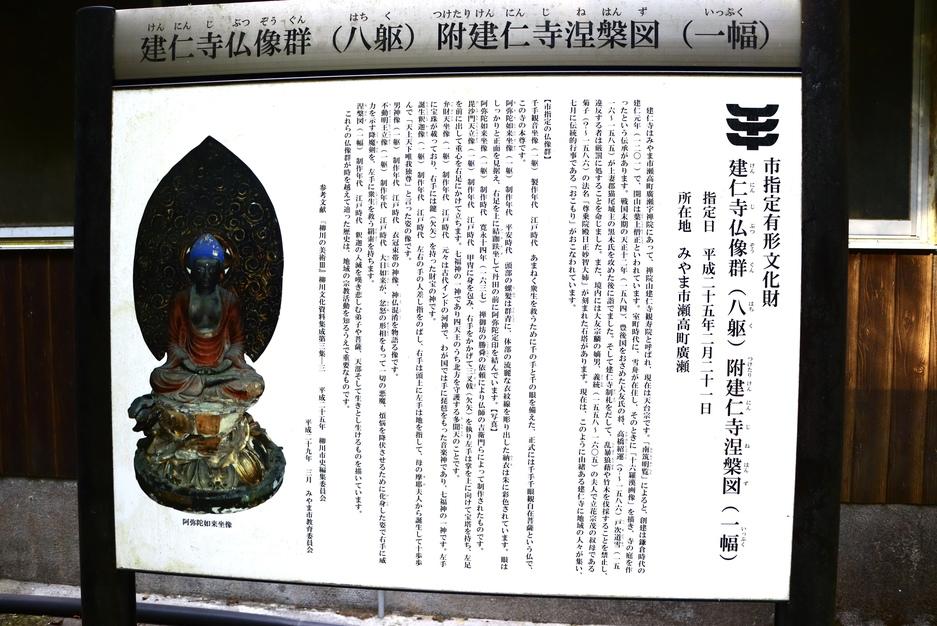 建仁寺仏像群（八躯）附建仁寺涅槃図（一幅）
けんにんじぶつぞうぐん はちく つけたりけんにんじねはんず いっぷく
市指定有形文化財
建仁寺仏像群（八躯）附建仁寺涅槃図（一幅）
けんにんじぶつぞうぐん はちく つけたりけんにんじねはんず いっぷく
指定日　平成二十五年二月二十一日
所在地　みやま市瀬高町廣瀬
建仁寺はみやま市瀬高町廣瀬字禅院にあって、禅院山建仁寺観寿院と呼ばれ、現在は天台宗です。「南筑明覧」によると、創建は鎌倉時代の
建仁元年（一二〇一）で、開山は葉上僧正といわれています。室町時代に、雪舟が在住し、そのときに「十六羅漢画像」を描き、寺の庭を作
ったという伝承があります。戦国末期の天正十二年（一五八四）、豊後国をおさめた大友氏の将、高橋紹運（？～一五八六）戸次道雪（一五
一六～一五八五）が上妻郡猫尾城主の黒木氏を攻めた後に詣でました。そして建仁寺制札をだして、乱暴狼藉や竹木を伐採することを禁止し、
違反する者は厳罰に処することを命じました。また、境内には大友宗麟の嫡男、義統（一五五八～一六〇五）の夫人で立花宗茂の叔母である
菊子（？～一五八六）の法名「尊乗院殿日正妙智大姉」が刻まれた石塔があります。現在は、このように由緒ある建仁寺に地域の人々が集い、
七月に伝統的行事である「おこもり」がおこなわれています。
【市指定の仏像群】
千手観音坐像（一躯）　製作年代　江戸時代　あまねく衆生を救うために千の手と千の眼を備えた、正式には千手千眼観自在菩薩という仏で、
この寺の本尊です。
阿弥陀如来坐像（一躯）　制作年代　平安時代　頭部の螺髪は群青に、体部の流麗な衣紋線を彫り出した衲衣は朱に彩色されています。眼は
しっかりと正面を見据え、右足を上に結跏趺坐して丹田の前に阿弥陀定印を結んでいます。【写真】
阿弥陀如来坐像（一躯）　制作時代　寛永十四年（一六三七）　禅御坊の勝舜の依頼により仏師の吉衛門らによって制作されたものです。
毘沙門天立像（一躯）　制作年代　江戸時代　甲冑に身を包み、右手をかかげて三叉戟（欠矢）を執り左手は掌を上に向けて宝塔を持ち、左足
を前に出して重心を右足にかけて立ちます。七福神の一神であり四天王のうち北方を守護する多聞天のことです。
弁財天坐像（一躯）　制作年代　江戸時代　元々は古代インドの河神で、わが国では手に琵琶をもった音楽神であり、七福神の一神です。左手
に宝珠が載っており、右手には鍵（欠矢）を持った財宝の神です。
誕生釈迦像（一躯）　制作年代　江戸時代　左右の手の人差し指をのばし、右手は頭上に左手は地を指して、母の摩耶夫人から誕生して十歩歩
んで「天上天下唯我独尊」と言った姿の像です。
男神像（一躯）　制作年代　江戸時代　衣冠束帯の神像。神仏混淆を物語る像です。
不動明王立像（一躯）　制作年代　江戸時代　大日如来が、忿怒の形相をもって一切の悪魔、煩悩を降伏させるために化身した姿で右手に威
力を示す降魔剣を、左手に衆生を救う羂索を持ちます。
涅槃図（一幅）　制作年代　江戸時代　釈迦の入滅を嘆き悲しむ弟子や菩薩、天部そして生きとし生けるものを描いています。
これらの仏像群が時を越えて辿った歴史は、地域の宗教活動を知るうえで重要なものです。
参考文献　『柳川の美術Ⅲ』柳川文化資料集成第三集―三　平成二十五年　柳川市史編集委員会
平成二十九年　三月　みやま市教育委員会
阿弥陀如来坐像